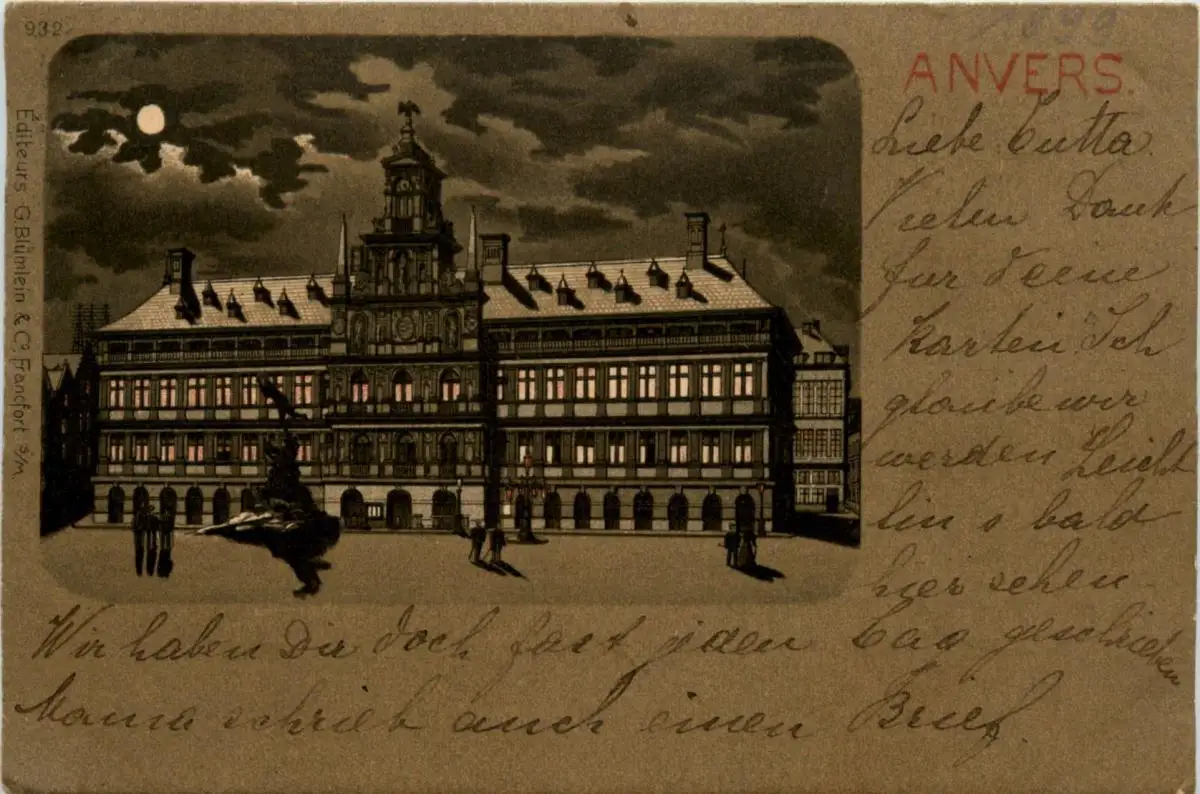 932
1899
ANVERS.
Editeurs G. Blümlein & Co. Francfort a/m.
Liebe Tutta.
Vielen Dank
fur deene
Karten Ich
glaube wir
werden Leicht
lin s bald
hier sehen
Wir haben Dir doch fast jeden Tag geschrieben
Mama schrieb auch einen Brief